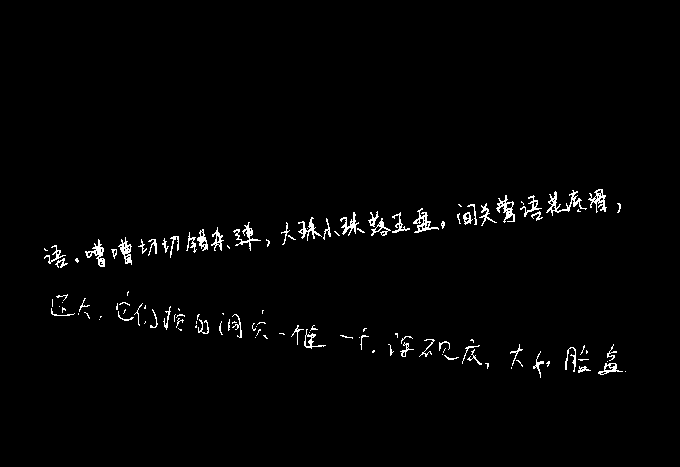 语。嘈嘈切切错杂弹，大珠小珠落玉盘。间关莺语花底滑，
还大。它们挖的洞穴一 深不见底，大如脸盆